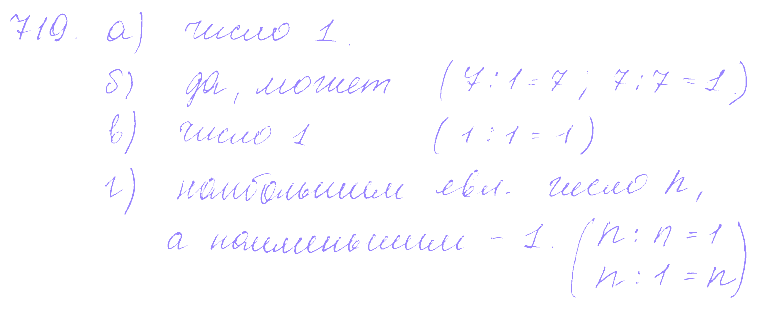 719. а) число 1.
б) да, может (7:1=7; 7:7=1.)
в) число 1 (1:1=1)
г) наибольшим явл. число n,
а наименьшим - 1. (n:n=1
n:1=n)